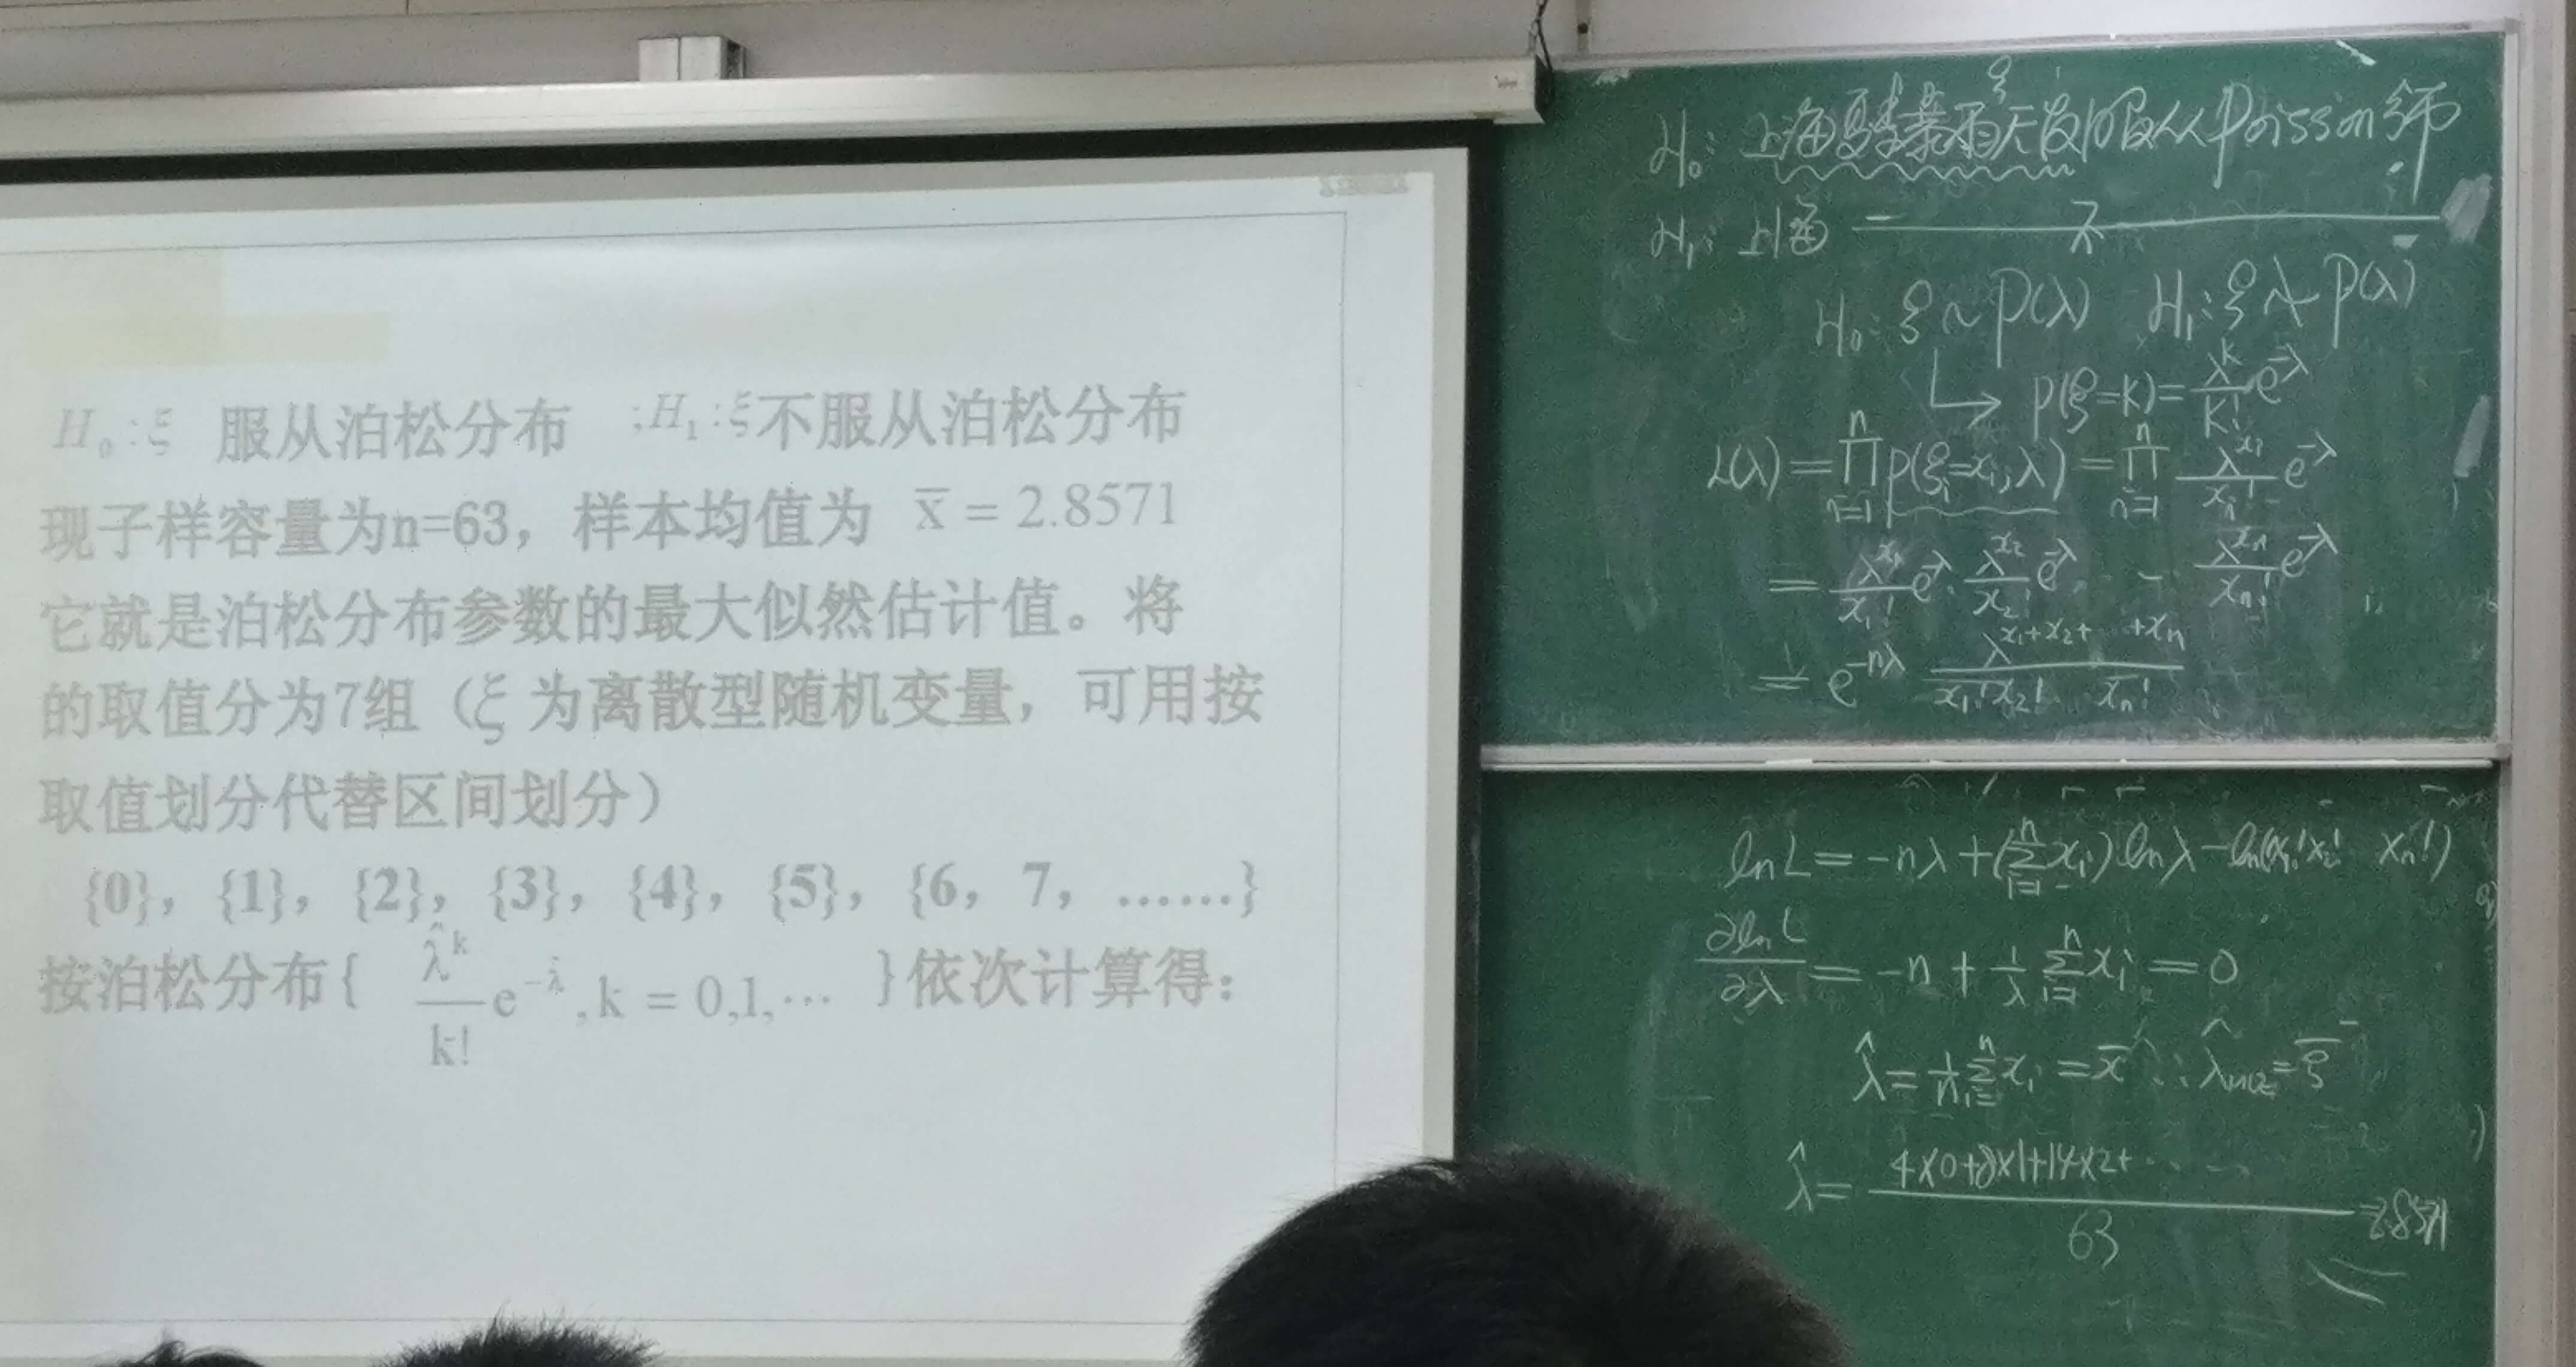 H₀:ξ 服从泊松分布 ;H₁:ξ不服从泊松分布
现子样容量为n=63，样本均值为 x̅ = 2.8571
它就是泊松分布参数的最大似然估计值。将
的取值分为7组（ξ 为离散型随机变量，可用按
取值划分代替区间划分）
{0}，{1}，{2}，{3}，{4}，{5}，{6，7，……}
按泊松分布{ λ̂^k/k! e^{-λ̂} , k = 0,1,… }依次计算得：
H₀: 上海夏季暴雨天数ξ服从Poisson分布
H₁: 上海 — 不 —
H₀: ξ ~ P(λ) H₁: ξ ≁ P(λ)
↳ P(ξ=K) = λ^K/K! e^{-λ}
L(λ) = ∏_{i=1}^{n} P(ξᵢ=xᵢ,λ) = ∏_{i=1}^{n} λ^{xᵢ}/xᵢ! e^{-λ}
= λ^{x₁}/x₁! e^{-λ} · λ^{x₂}/x₂! e^{-λ} · - λ^{xₙ}/xₙ! e^{-λ}
= e^{-nλ} λ^{x₁+x₂+ +xₙ}/x₁!x₂! xₙ!
ln L = -nλ + (∑_{i=1}^{n} xᵢ) ln λ - ln(x₁!x₂! xₙ!)
∂ln L/∂λ = -n + 1/λ ∑_{i=1}^{n} xᵢ = 0
λ̂ = 1/n ∑_{i=1}^{n} xᵢ = x̅ ∴ λ̂ = ξ̅
λ̂ = 4×0+8×1+14×2+ ··· / 63 = 2.8571